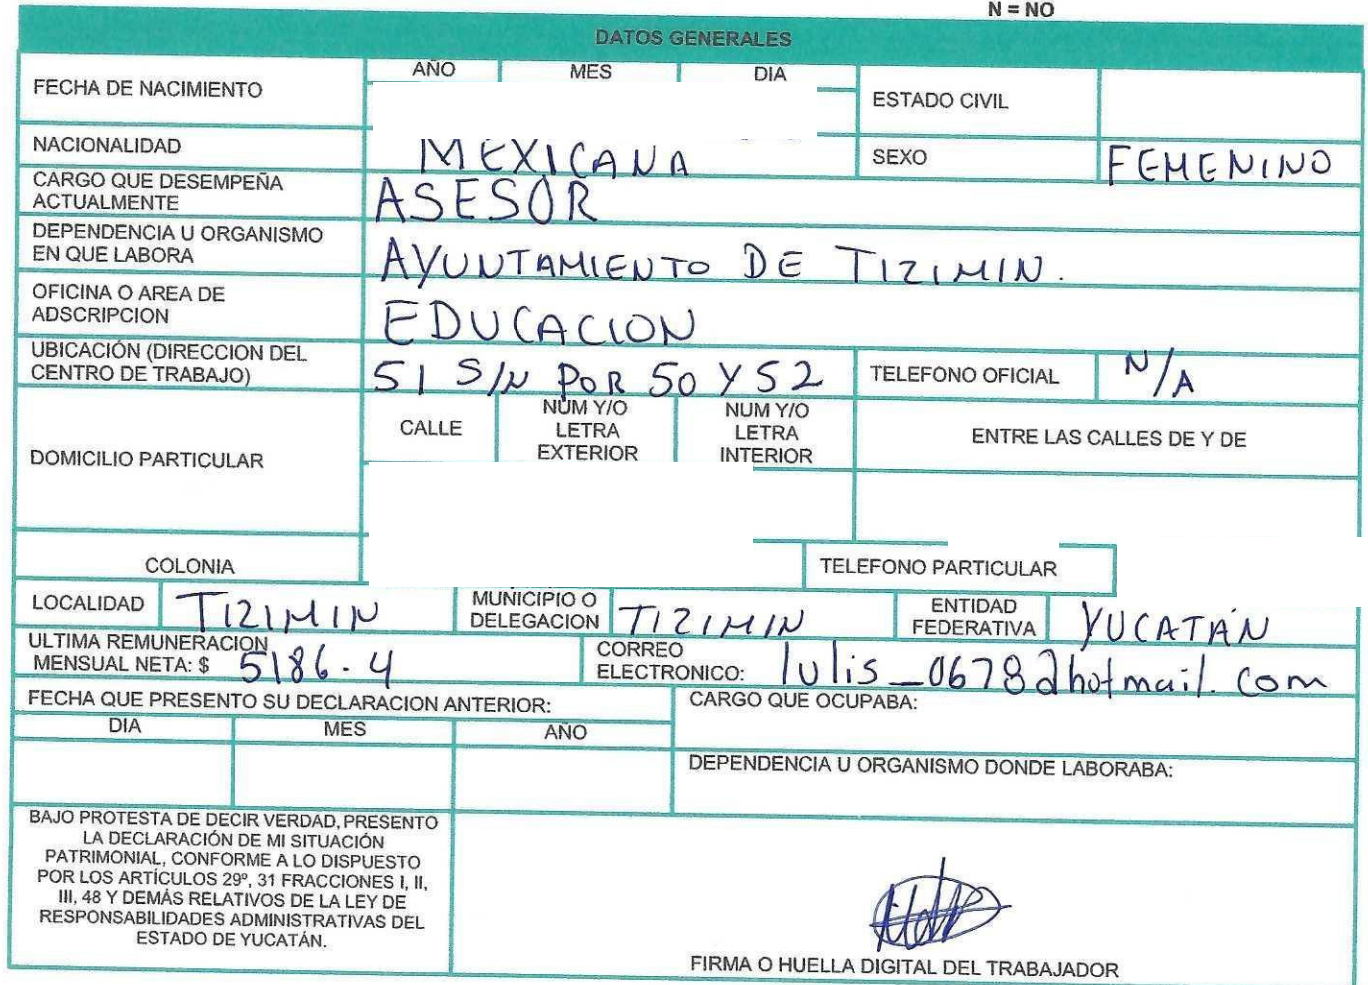 N = NO
DATOS GENERALES
FECHA DE NACIMIENTO
AÑO MES DIA
ESTADO CIVIL
NACIONALIDAD MEXICANA SEXO FEMENINO
CARGO QUE DESEMPEÑA
ACTUALMENTE
ASESOR
DEPENDENCIA U ORGANISMO
EN QUE LABORA
AYUNTAMIENTO DE TIZIMIN.
OFICINA O AREA DE
ADSCRIPCION
EDUCACION
UBICACIÓN (DIRECCION DEL
CENTRO DE TRABAJO)
51 S/N POR 50 Y 52
TELEFONO OFICIAL N/A
DOMICILIO PARTICULAR
CALLE
NUM Y/O
LETRA
EXTERIOR
NUM Y/O
LETRA
INTERIOR
ENTRE LAS CALLES DE Y DE
COLONIA
TELEFONO PARTICULAR
LOCALIDAD TIZIMIN
MUNICIPIO O
DELEGACION
TIZIMIN
ENTIDAD
FEDERATIVA
YUCATÁN
ULTIMA REMUNERACION
MENSUAL NETA: $ 5186.4
CORREO
ELECTRONICO: lulis_0678@hotmail.com
FECHA QUE PRESENTO SU DECLARACION ANTERIOR:
DIA MES AÑO
CARGO QUE OCUPABA:
DEPENDENCIA U ORGANISMO DONDE LABORABA:
BAJO PROTESTA DE DECIR VERDAD, PRESENTO
LA DECLARACIÓN DE MI SITUACIÓN
PATRIMONIAL, CONFORME A LO DISPUESTO
POR LOS ARTÍCULOS 29º, 31 FRACCIONES I, II,
III, 48 Y DEMÁS RELATIVOS DE LA LEY DE
RESPONSABILIDADES ADMINISTRATIVAS DEL
ESTADO DE YUCATÁN.
FIRMA O HUELLA DIGITAL DEL TRABAJADOR